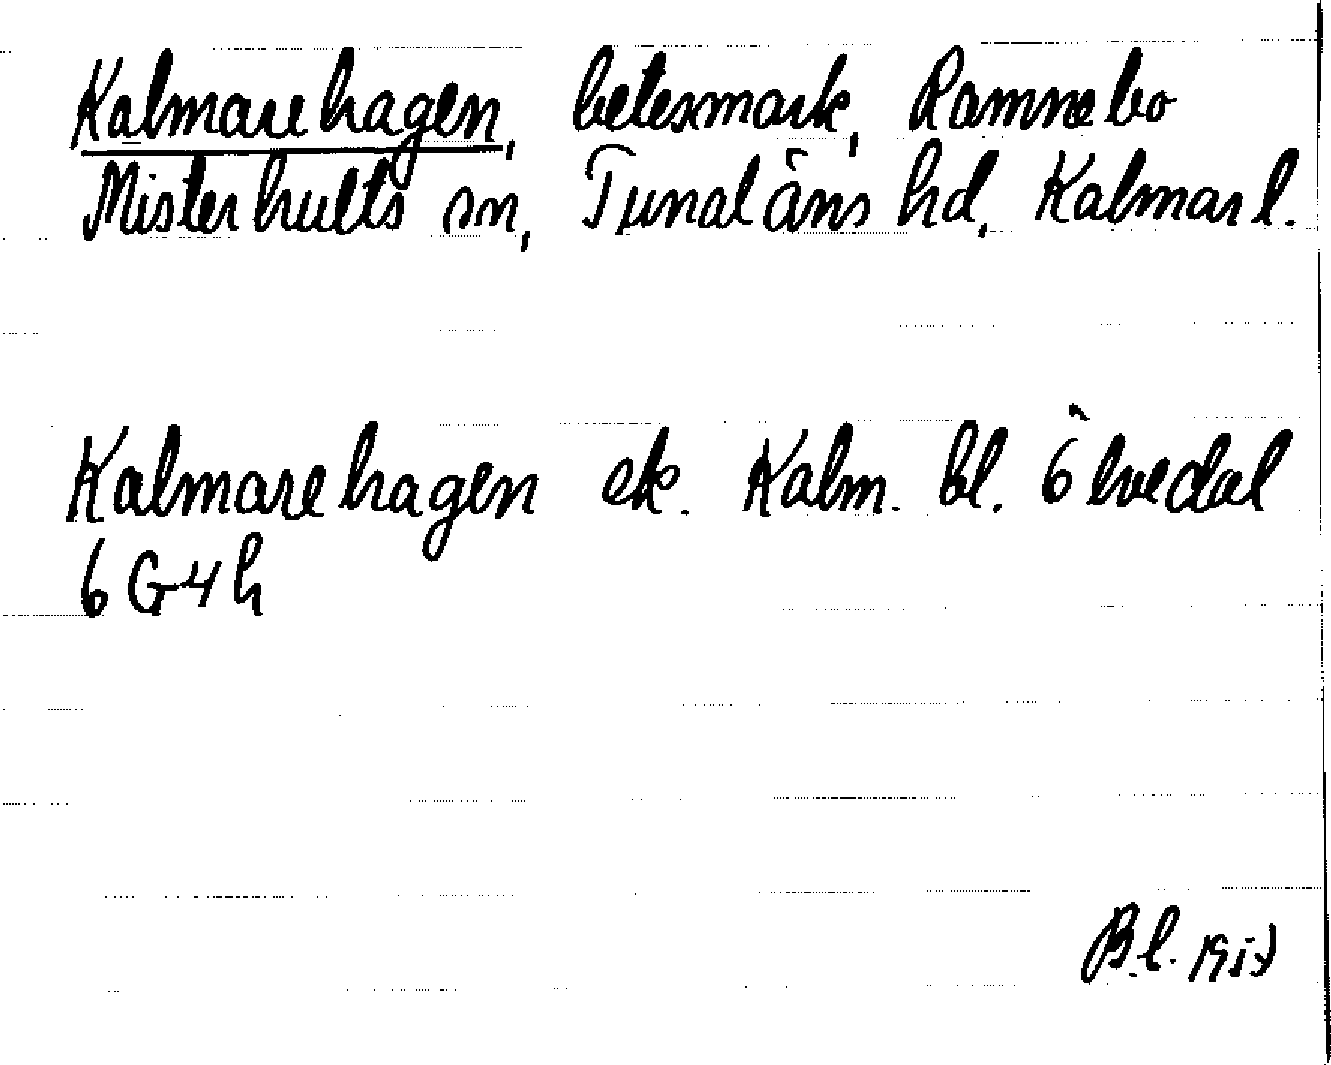 Kalmarehagen, betesmark, Ramnebo
Misterhults sn, Tunaläns hd, Kalmar l.
Kalmarehagen ek. Kalm. bl. Ölvedal
6 G 4 h
B.l. 1957